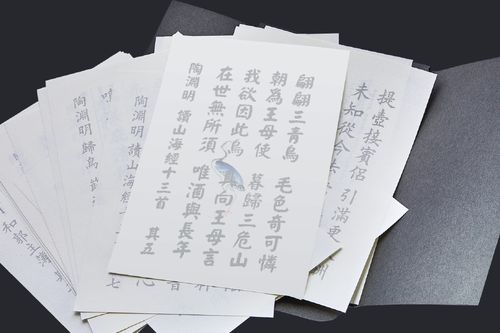 翩翩三青鳥 毛色奇可憐
朝為王母使 暮歸三危山
我欲因此鳥 具向王母言
在世無所須 唯酒與長年
陶淵明 讀山海經十三首 其五
提壺接賓侶 引滿更
未知從今去
陶淵明 讀山海經
七
陶淵明 歸鳥
和郭主簿